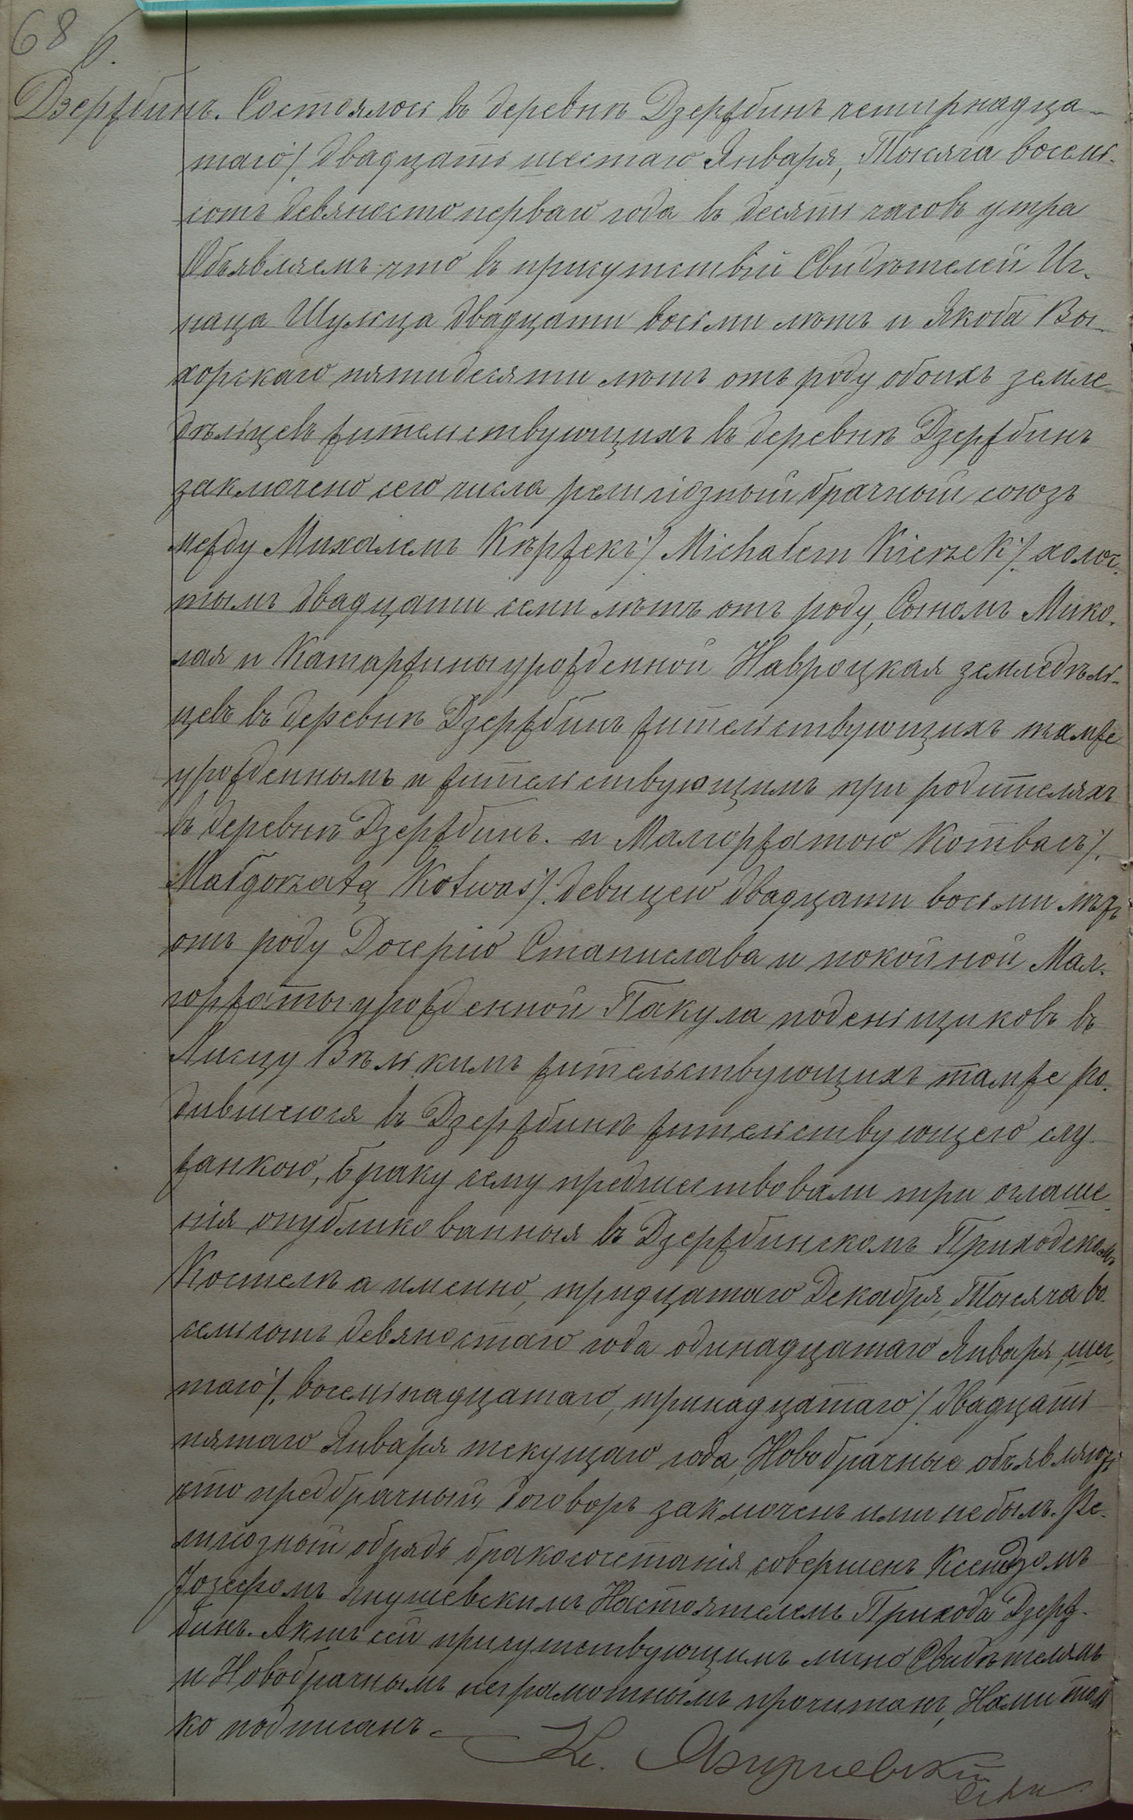 68
6.
Дзержбинъ. Состоялось въ деревнѣ Дзержбинъ четирнадца-
таго /. двадцать шестаго Января, Тысяча восемь-
сотъ девяносто перваго года въ десять часовъ утра
Объявляемъ что въ присутствіи Свидѣтелей Иг-
наца Шульца двадцати восьми лѣтъ и Якоба
пятидесяти лѣтъ отъ роду обоихъ земле-
дѣльцевъ жительствующихъ въ деревнѣ Дзержбинъ
заключено сего числа религіозный брачный союзъ
между Михалемъ Кѣржекъ /. Michałem Kierzek /. холос-
тымъ двадцати семи лѣтъ отъ роду, Сыномъ Мико-
лая и Катаржины урожденной Навроцкая земледѣль-
цевъ въ деревнѣ Дзержбинъ жительствующихъ тамже
урожденнымъ и жительствующимъ при родителяхъ
въ деревнѣ Дзержбинъ. и Малгоржатою Котвасъ /.
Małgorzatą Kotwas /. девицею двадцати восьми лѣтъ
отъ роду Дочерію Станислава и покойной Мал-
горжаты урожденной Пакула поденьщиковъ въ
Лисцу Вѣлькимъ жительствующихъ тамже ро-
дившеюся въ Дзержбинѣ жительствующего слу-
жанкою, Браку сему предшествовали три оглаше-
нія опубликованныя въ Дзержбинскомъ Приходскомъ
Костелѣ а именно, тридцатаго Декабря, Тысяча во-
семьсотъ девяностаго года одинадцатаго Января, шес-
таго /. восемьнадцатаго, тринадцатаго /. двадцать
пятаго Января текущаго года Новобрачные объявляютъ
что предбрачный договоръ заключенъ ими небылъ. Ре-
лигіозный обрядъ бракосочетанія совершенъ Ксендзомъ
Іозефомъ Янушевскимъ Настоятелемъ Прихода Дзерж-
бинъ. Актъ сей присутствующимъ лично Свидѣтелямъ
и Новобрачнымъ неграмотнымъ прочитанъ, Нами толь
ко подписанъ.-
Кс. Янушевскій